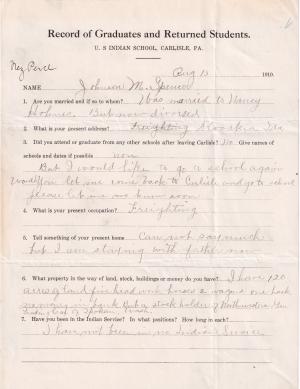 Record of Graduates and Returned Students.
U. S INDIAN SCHOOL, CARLISLE, PA.
Nez Perce
Aug 1910.
NAME Johnson M. Spencer
1. Are you married and if so to whom? Was married to Nancy
Holmes. But now divorsed
2. What is your present address? Freighting Ida
3. Did you attend or graduate from any other schools after leaving Carlisle? No. Give names of
schools and dates if possible non
But I would like to go a school again
would you let me come back to Carlisle and go to school
please let me know soon
4. What is your present occupation? Freighting
5. Tell something of your present home Can not say much
but I am staying with father now
6. What property in the way of land, stock, buildings or money do you have? I have 120
acres of land five head work horses 2 wagons one hack
money in bank But a stock holder of Northwestern
of Spokan, Wash.
7. Have you been in the Indian Service? In what positions? How long in each?
I have not been in no Indian Service